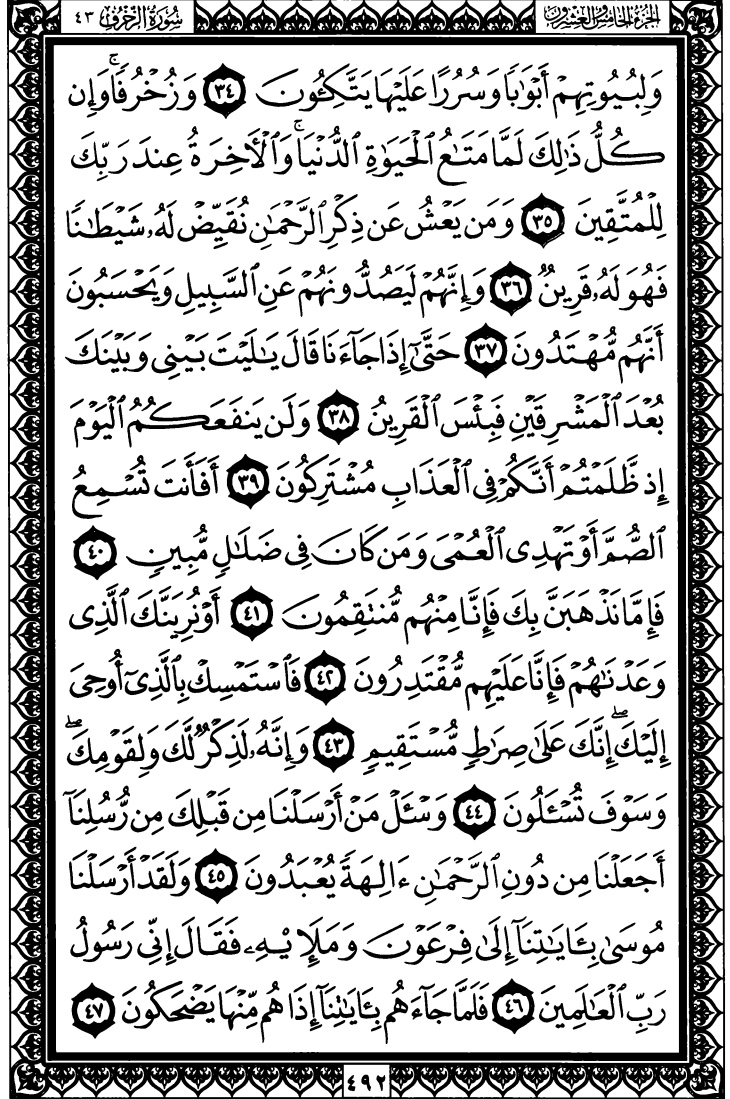 الجزء الخامس والعشرون
سورة الزخرف ٤٣
وَلِبُيُوتِهِمْ أَبْوَٰبًا وَسُرُرًا عَلَيْهَا يَتَّكِـُٔونَ ٣٤ وَزُخْرُفًا ۚ وَإِن
كُلُّ ذَٰلِكَ لَمَّا مَتَـٰعُ ٱلْحَيَوٰةِ ٱلدُّنْيَا ۚ وَٱلْـَٔاخِرَةُ عِندَ رَبِّكَ
لِلْمُتَّقِينَ ٣٥ وَمَن يَعْشُ عَن ذِكْرِ ٱلرَّحْمَـٰنِ نُقَيِّضْ لَهُۥ شَيْطَـٰنًا
فَهُوَ لَهُۥ قَرِينٌ ٣٦ وَإِنَّهُمْ لَيَصُدُّونَهُمْ عَنِ ٱلسَّبِيلِ وَيَحْسَبُونَ
أَنَّهُم مُّهْتَدُونَ ٣٧ حَتَّىٰٓ إِذَا جَآءَنَا قَالَ يَـٰلَيْتَ بَيْنِى وَبَيْنَكَ
بُعْدَ ٱلْمَشْرِقَيْنِ فَبِئْسَ ٱلْقَرِينُ ٣٨ وَلَن يَنفَعَكُمُ ٱلْيَوْمَ
إِذ ظَّلَمْتُمْ أَنَّكُمْ فِى ٱلْعَذَابِ مُشْتَرِكُونَ ٣٩ أَفَأَنتَ تُسْمِعُ
ٱلصُّمَّ أَوْ تَهْدِى ٱلْعُمْىَ وَمَن كَانَ فِى ضَلَـٰلٍ مُّبِينٍ ٤٠
فَإِمَّا نَذْهَبَنَّ بِكَ فَإِنَّا مِنْهُم مُّنتَقِمُونَ ٤١ أَوْ نُرِيَنَّكَ ٱلَّذِى
وَعَدْنَـٰهُمْ فَإِنَّا عَلَيْهِم مُّقْتَدِرُونَ ٤٢ فَٱسْتَمْسِكْ بِٱلَّذِىٓ أُوحِىَ
إِلَيْكَ ۖ إِنَّكَ عَلَىٰ صِرَٰطٍ مُّسْتَقِيمٍ ٤٣ وَإِنَّهُۥ لَذِكْرٌ لَّكَ وَلِقَوْمِكَ ۖ
وَسَوْفَ تُسْـَٔلُونَ ٤٤ وَسْـَٔلْ مَنْ أَرْسَلْنَا مِن قَبْلِكَ مِن رُّسُلِنَآ
أَجَعَلْنَا مِن دُونِ ٱلرَّحْمَـٰنِ ءَالِهَةً يُعْبَدُونَ ٤٥ وَلَقَدْ أَرْسَلْنَا
مُوسَىٰ بِـَٔايَـٰتِنَآ إِلَىٰ فِرْعَوْنَ وَمَلَإِي۟هِۦ فَقَالَ إِنِّى رَسُولُ
رَبِّ ٱلْعَـٰلَمِينَ ٤٦ فَلَمَّا جَآءَهُم بِـَٔايَـٰتِنَآ إِذَا هُم مِّنْهَا يَضْحَكُونَ ٤٧
٤٩٢